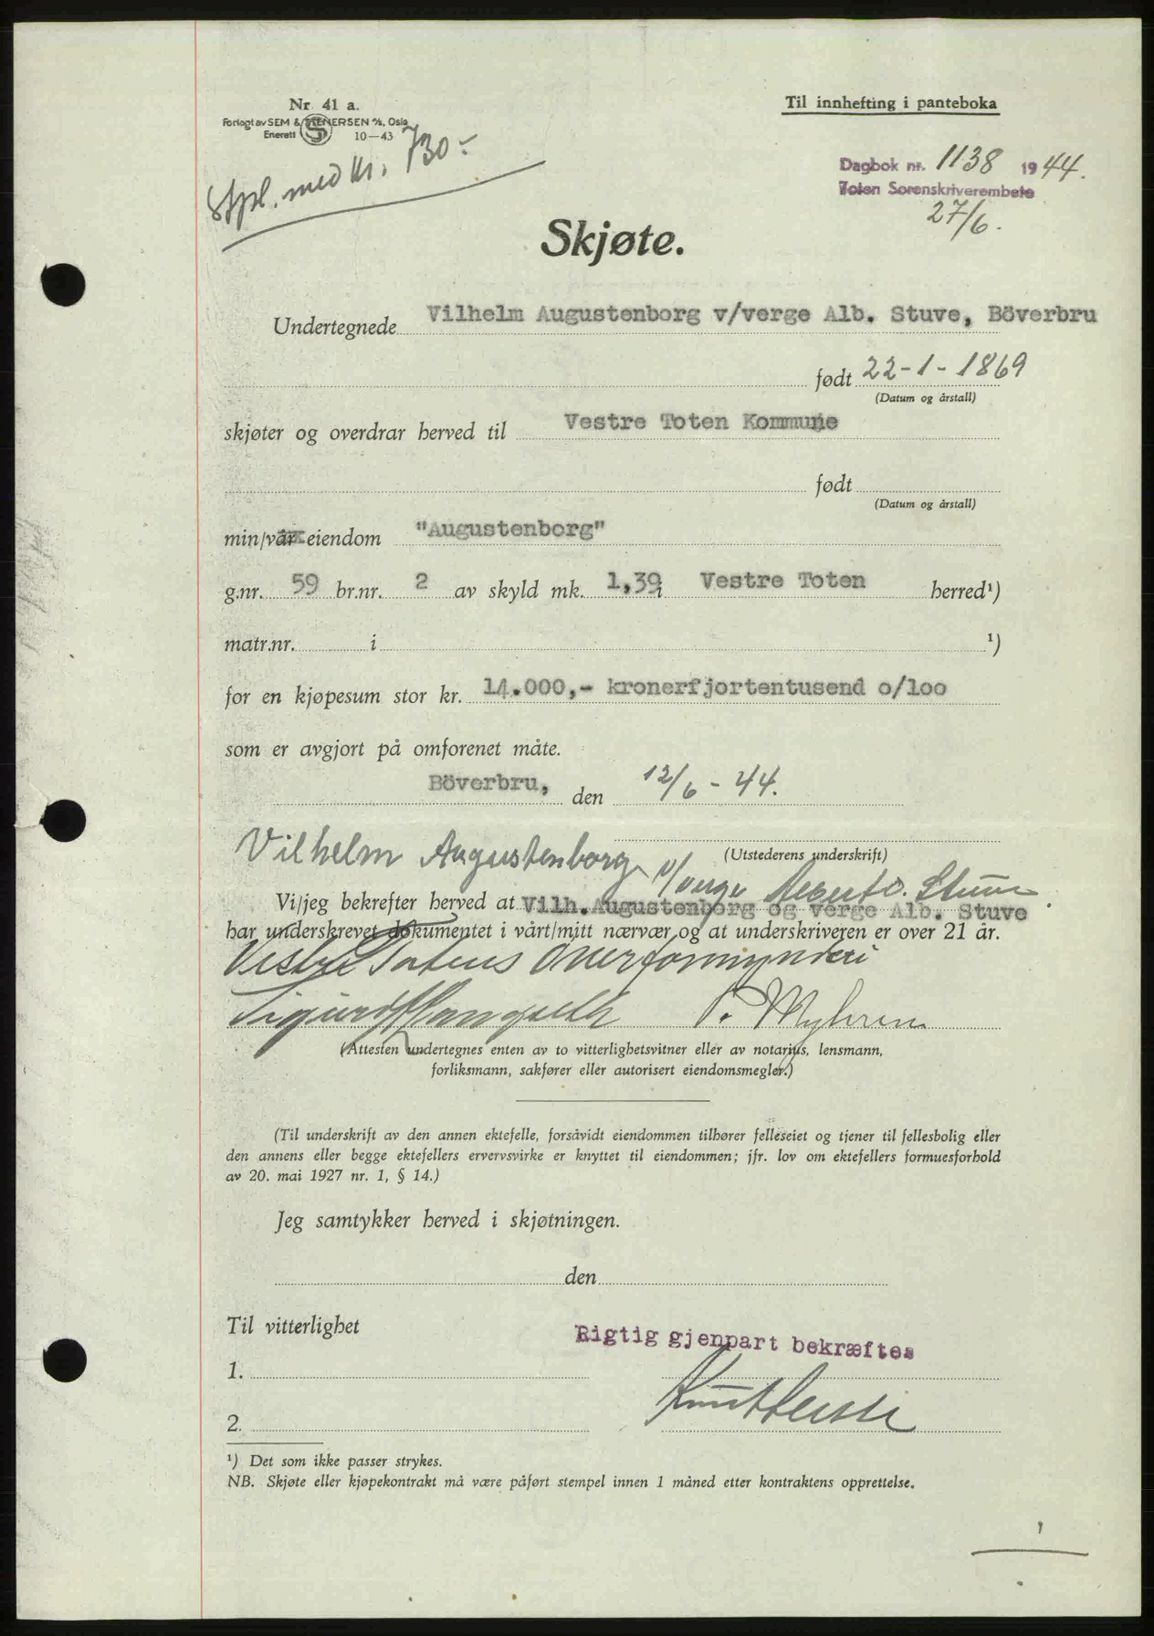 Nr. 41 a.
Forlagt av SEM & STENERSEN A/S, Oslo
Enerett 10—43
Stpl. med kr. 730.-
Til innhefting i panteboka
Dagbok nr. 1138 1944.
Toten Sorenskriverembete
27/6.
Skjøte.
Undertegnede Vilhelm Augustenborg v/verge Alb. Stuve, Böverbru
født 22-1-1869
(Datum og årstall)
skjøter og overdrar herved til Vestre Toten Kommune
født
(Datum og årstall)
min/vår eiendom "Augustenborg"
g.nr. 59 br.nr. 2 av skyld mk. 1,39 i Vestre Toten herred¹)
matr.nr. i ¹)
for en kjøpesum stor kr. 14.000,- kronerfjortentusend o/loo
som er avgjort på omforenet måte.
Böverbru, den 12/6 - 44.
Vilhelm Augustenborg
(Utstederens underskrift)
v/verge Albert O. Stuve.
Vi/jeg bekrefter herved at Vilh. Augustenborg og verge Alb. Stuve
har underskrevet dokumentet i vårt/mitt nærvær og at underskriveren er over 21 år.
Vestre Totens Overformynderi
Sigurd P. Myhren
(Attesten undertegnes enten av to vitterlighetsvitner eller av notarius, lensmann,
forliksmann, sakfører eller autorisert eiendomsmegler.)
(Til underskrift av den annen ektefelle, forsåvidt eiendommen tilhører felleseiet og tjener til fellesbolig eller
den annens eller begge ektefellers ervervsvirke er knyttet til eiendommen; jfr. lov om ektefellers formuesforhold
av 20. mai 1927 nr. 1, § 14.)
Jeg samtykker herved i skjøtningen.
den
Til vitterlighet
Rigtig gjenpart bekræftes
1.
Knut
2.
¹) Det som ikke passer strykes.
NB. Skjøte eller kjøpekontrakt må være påført stempel innen 1 måned etter kontraktens opprettelse.